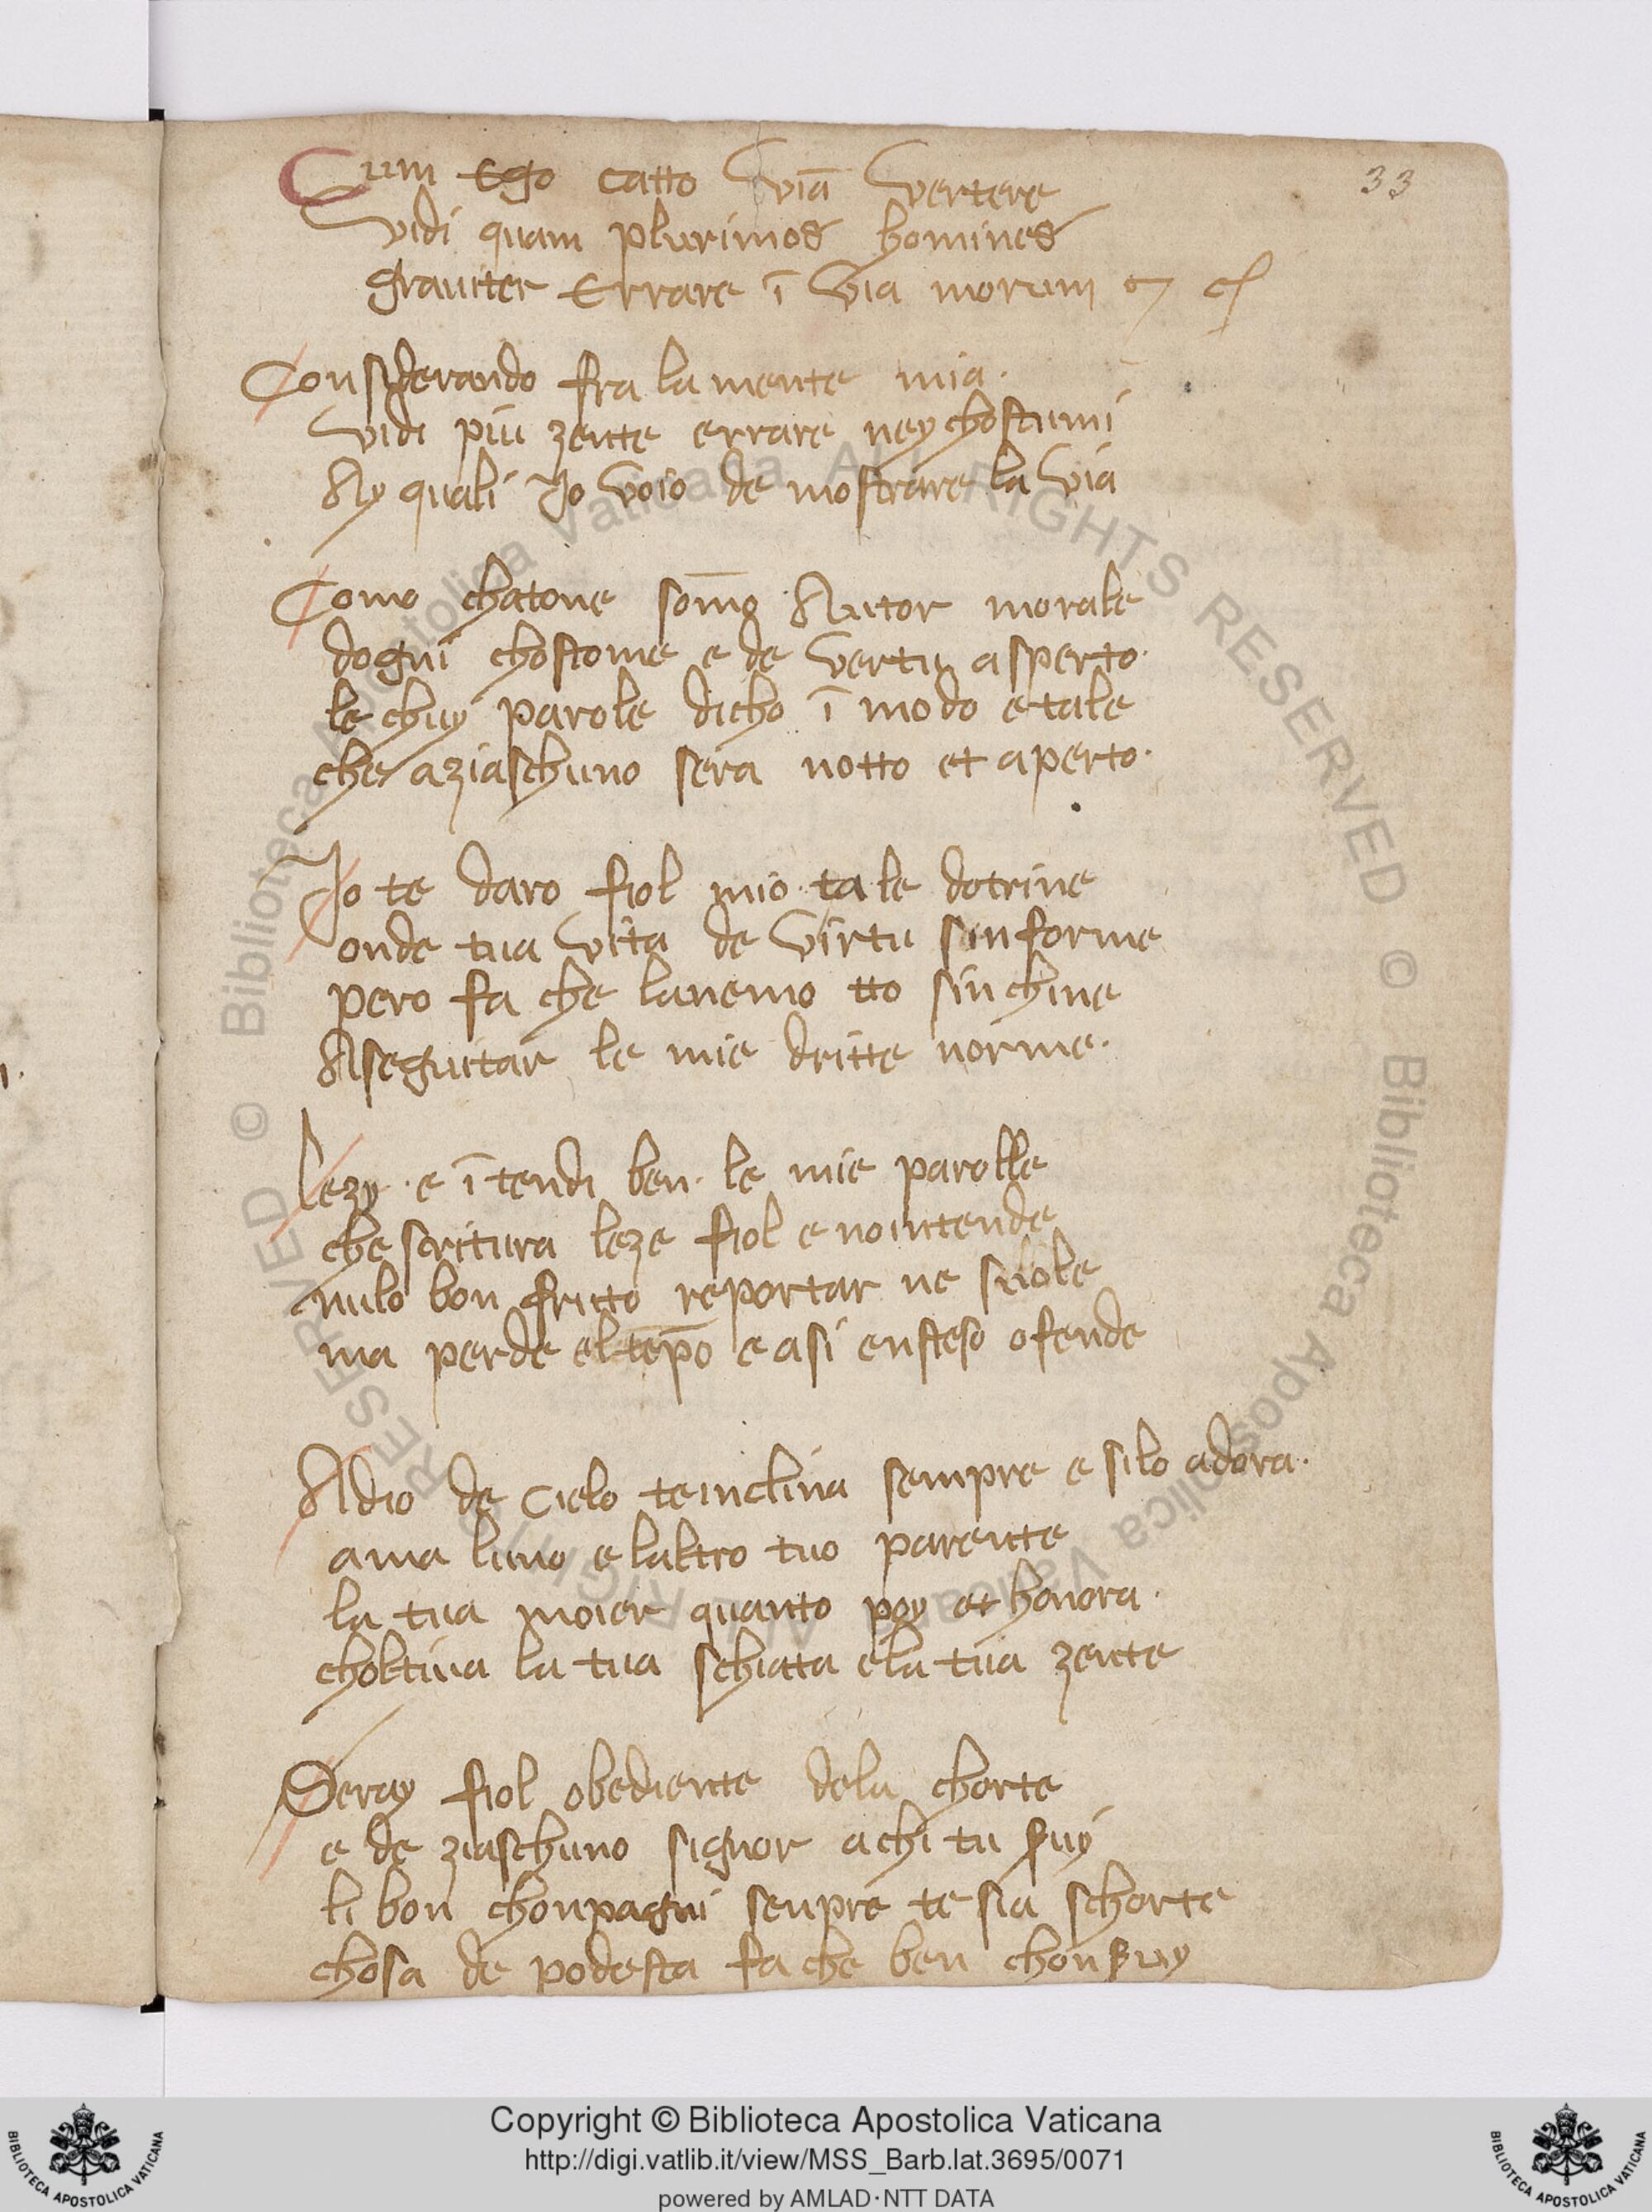 33
Cum Ego catto viā vertere
vidi quam plurimos homines
grauiter Errare ī via morum
Considerando fra la mente mia.
vidi piu zente errare ney chostumi
Ay quali Jo voio de mostrare la via
Como chatone som̄o Autor morale
dogni chostome e de vertu asperto.
le chuy parole dicho ī modo etale
che aziaschuno sera notto et aperto.
Jo te daro fiol mio tale dotrine
onde tua vita de virtu sinforme
pero fa che lanemo tto sinchine
Aseguitar le mie dritte norme.
Lezy. e ītendi ben. le mie parolle
che scritura leze fiol e nointende
nulo bon fruto reportar ne suole
ma perde el tēpo e asi ensteso ofende
Adio de cielo teinclina sempre e silo adora.
ama luno e laltro tuo parente
la tua moier quanto poy et honora.
choltiua la tua schiatta ela tua zente
Seray fiol obediente dela chorte
e de ziaschuno signor achi tu suy
li bon chonpagni senpre te sia schorte
chosa de podesta fa che ben chonsuy
© Biblioteca Apostolica Vaticana ALL RIGHTS RESERVED © Biblioteca Apostolica Vaticana ALL RIGHTS RESERVED
Copyright © Biblioteca Apostolica Vaticana
http://digi.vatlib.it/view/MSS_Barb.lat.3695/0071
powered by AMLAD·NTT DATA
BIBLIOTECA APOSTOLICA VATICANA
BIBLIOTECA APOSTOLICA VATICANA